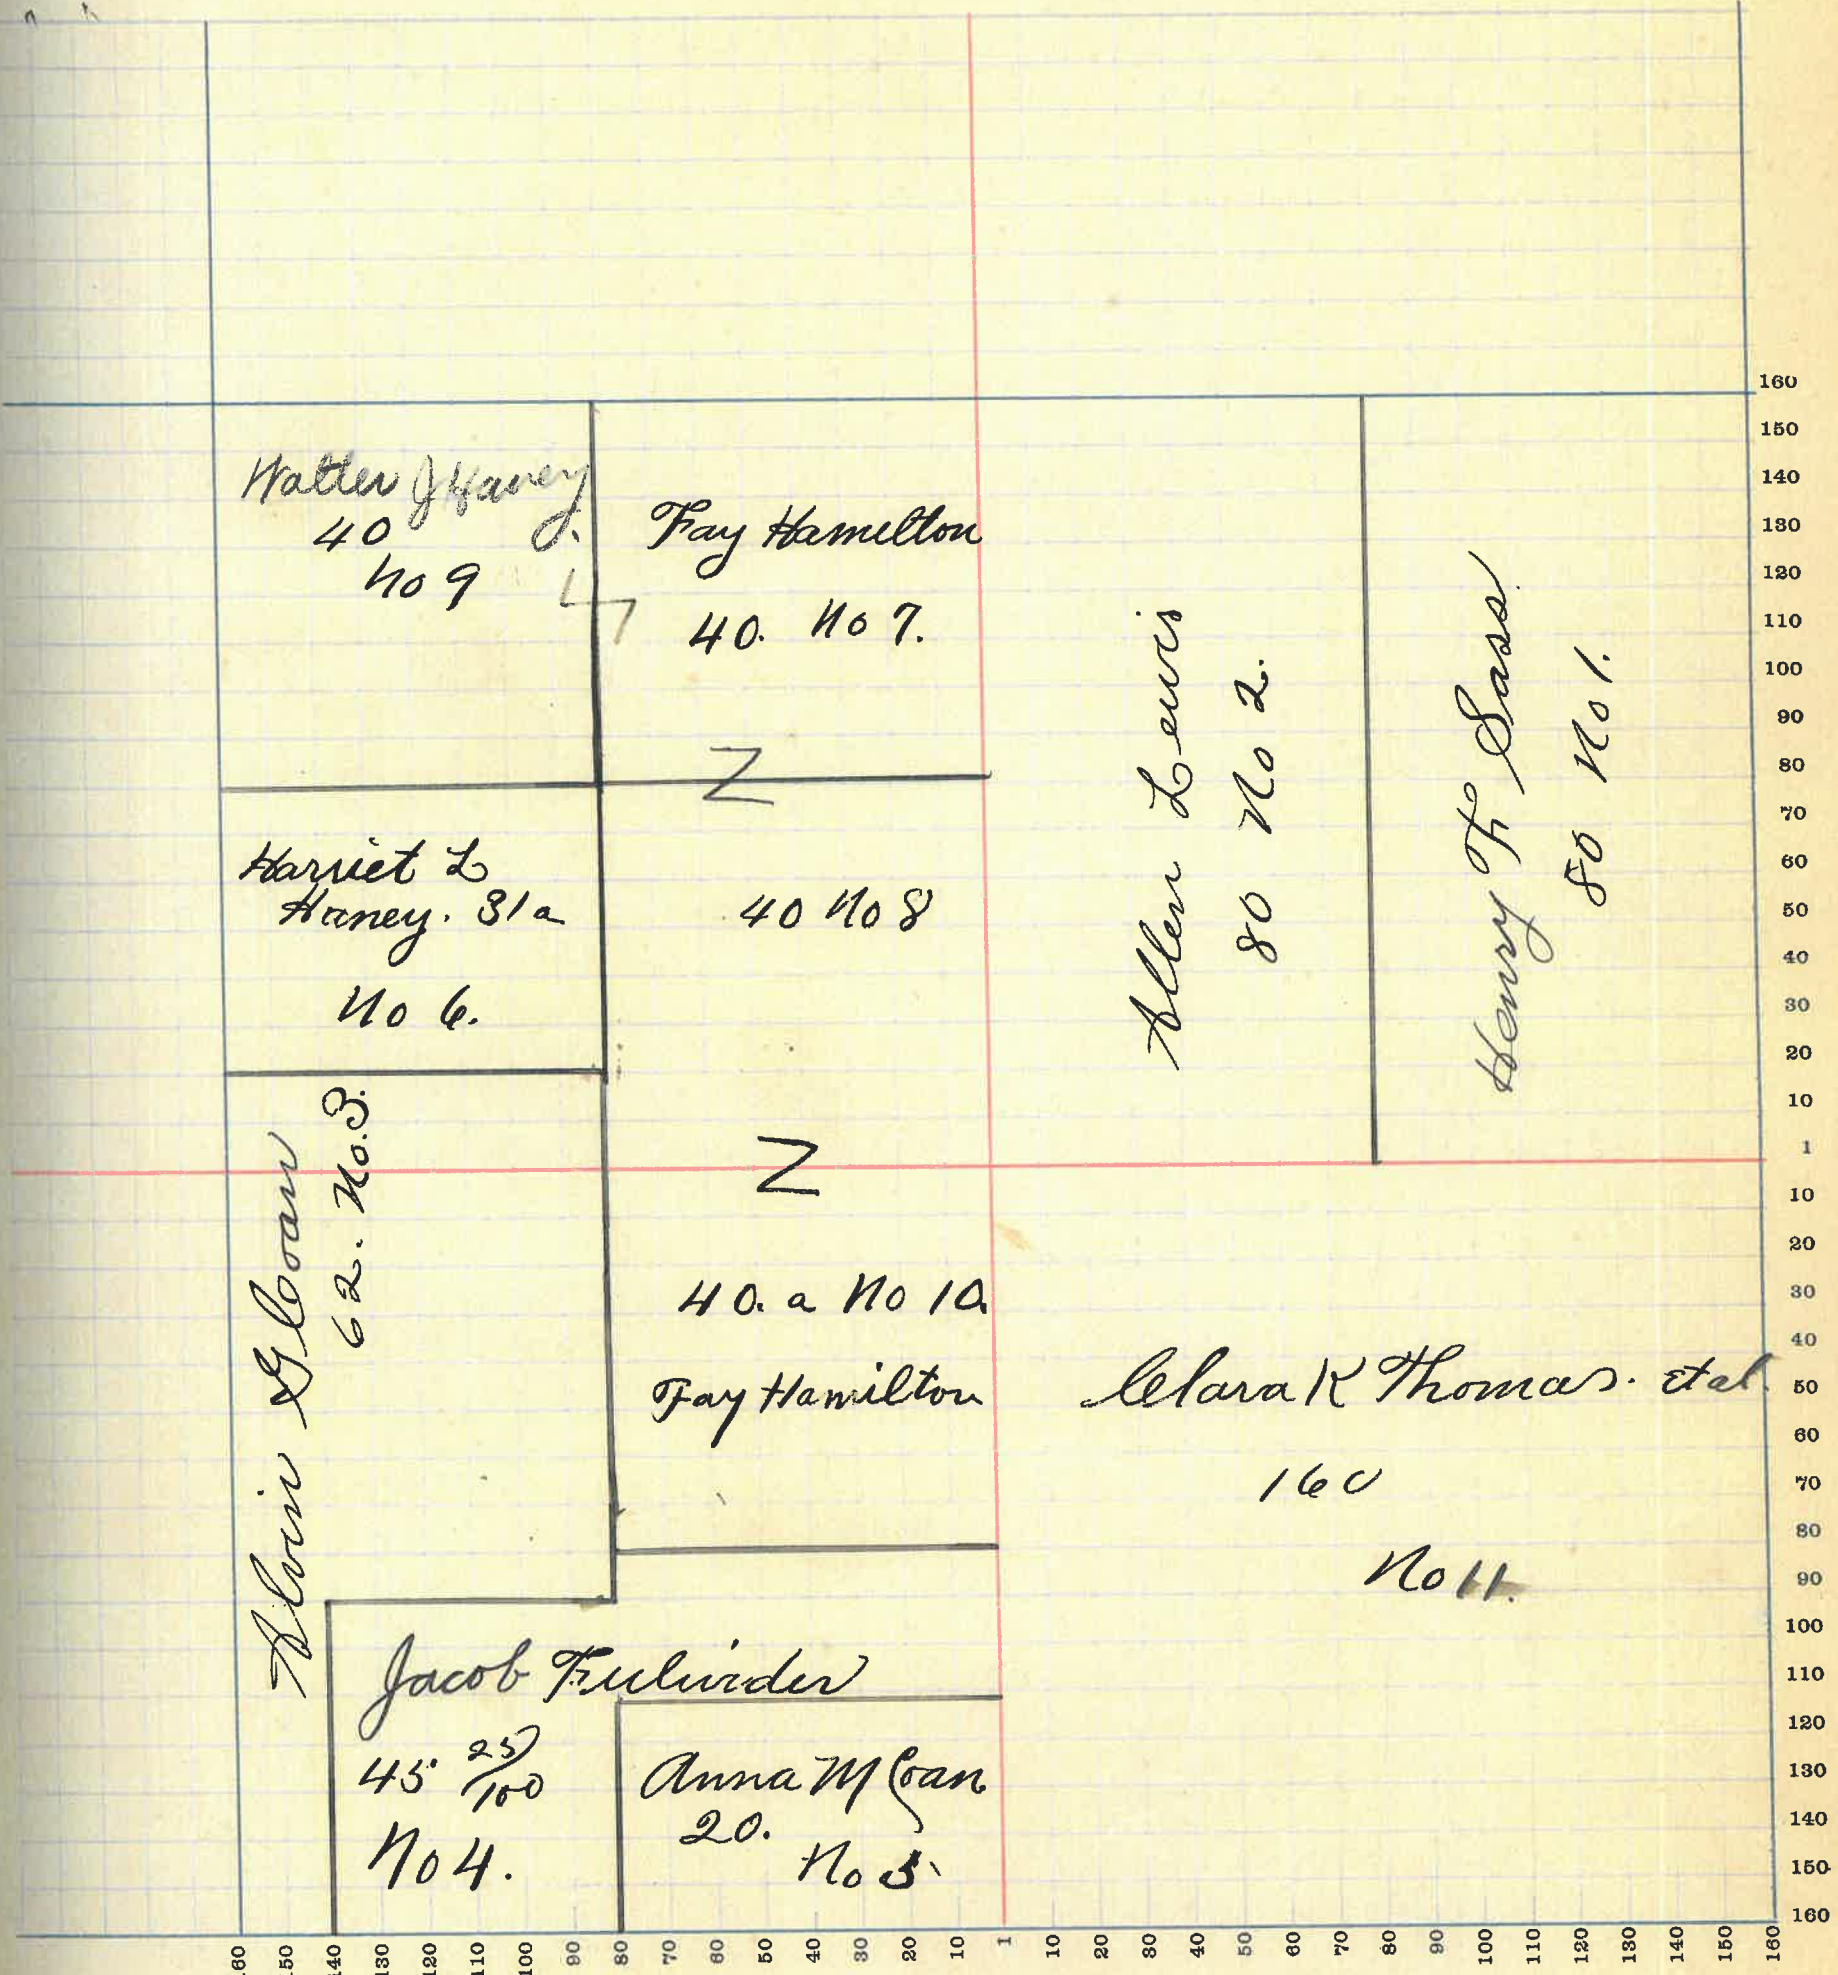 Walter J Haney
40 J.
No 9
Fay Hamelton
40. No 7.
Z
Harriet L
Haney. 31a
No 6.
40 No 8
Allen Lewis
80 No 2.
Henry F Sass.
80 No 1.
Alvin G Coan
62. No. 3.
Z
40. a No 10.
Fay Hamilton
Clara K Thomas. et al.
160
No 11.
Jacob Fulwider
45 25/100
No 4.
Anna M Coan
20.
No 5
160
150
140
130
120
110
100
90
80
70
60
50
40
30
20
10
1
10
20
30
40
50
60
70
80
90
100
110
120
130
140
150
160
160 150 140 130 120 110 100 90 80 70 60 50 40 30 20 10 1 10 20 30 40 50 60 70 80 90 100 110 120 130 140 150 160